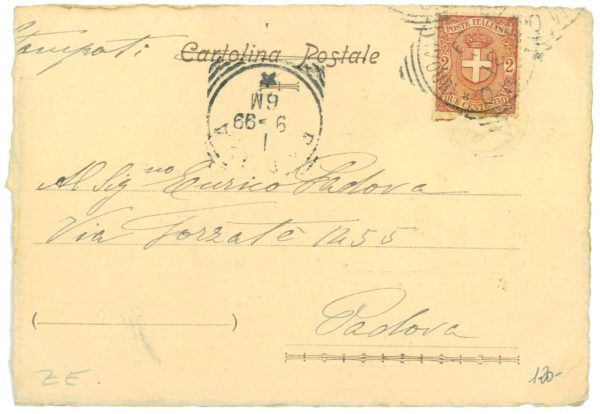 Stampati
Cartolina Postale
POSTE ITALIANE
2 2
DUE CENTESIMI
6M
9-99
1
Al Sig.no Enrico Padova
Via Forzatè 1255
Padova
ZE.
120-